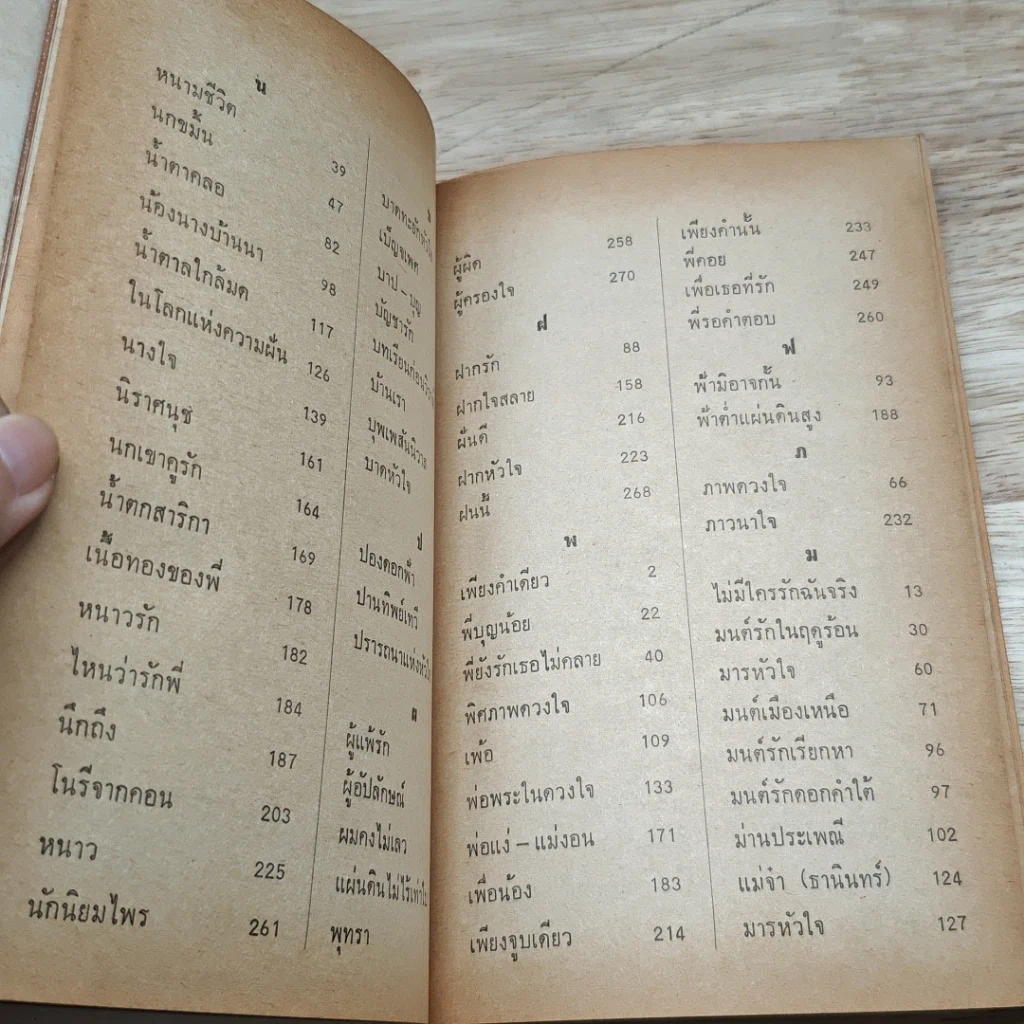 น
หนามชีวิต 39
นกขมิ้น 47
น้ำตาคลอ 82
น้องนางบ้านนา 98
น้ำตาลใกล้มด 117
ในโลกแห่งความฝัน 126
นางใจ 139
นิราศนุช 161
นกเขาคูรัก 164
น้ำตกสาริกา 169
เนื้อทองของพี่ 178
หนาวรัก 182
ไหนว่ารักพี่ 184
นึกถึง 187
โนรีจากคอน 203
หนาว 225
นักนิยมไพร 261
เบ็ญจเพศ
บาป – บุญ
บัญชารัก
บทเรียนก่อน
บ้านเรา
บุพเพสันนิวาส
บาดหัวใจ
ป
ปองดอกฟ้า
ปานทิพย์เทวี
ปรารถนาแห่งหัวใจ
ผ
ผู้แพ้รัก
ผู้อัปลักษณ์
ผมคงไม่เลว
แผ่นดินไม่ไร้เท่าใบ
พุทรา
ผู้ผิด 258
ผู้ครองใจ 270
ฝ
ฝากรัก 88
ฝากใจสลาย 158
ฝันดี 216
ฝากหัวใจ 223
ฝนนี้ 268
พ
เพียงคำเดียว 2
พี่บุญน้อย 22
พี่ยังรักเธอไม่คลาย 40
พิศภาพดวงใจ 106
เพ้อ 109
พ่อพระในดวงใจ 133
พ่อแง่ – แม่งอน 171
เพื่อน้อง 183
เพียงจูบเดียว 214
เพียงคำนั้น 233
พี่คอย 247
เพื่อเธอที่รัก 249
พี่รอคำตอบ 260
ฟ
ฟ้ามิอาจกั้น 93
ฟ้าต่ำแผ่นดินสูง 188
ภ
ภาพดวงใจ 66
ภาวนาใจ 232
ม
ไม่มีใครรักฉันจริง 13
มนต์รักในฤดูร้อน 30
มารหัวใจ 60
มนต์เมืองเหนือ 71
มนต์รักเรียกหา 96
มนต์รักดอกคำใต้ 97
ม่านประเพณี 102
แม่จ๋า (ธานินทร์) 124
มารหัวใจ 127